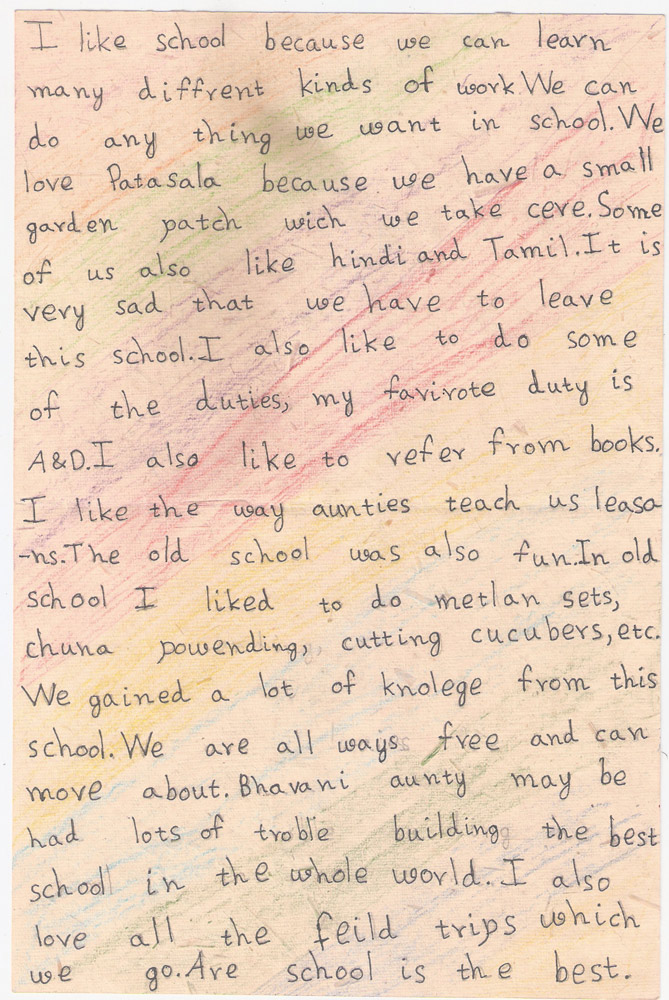 I like school because we can learn
many diffrent kinds of work.We can
do any thing we want in school.We
love Patasala because we have a small
garden patch wich we take cere.Some
of us also like hindi and Tamil.It is
very sad that we have to leave
this school.I also like to do some
of the duties, my favirote duty is
A&D.I also like to refer from books.
I like the way aunties teach us leaso
-ns.The old school was also fun.In old
school I liked to do metlan sets,
chuna powending, cutting cucubers,etc.
We gained a lot of knolege from this
school.We are all ways free and can
move about.Bhavani aunty may be
had lots of troble building the best
school in the whole world.I also
love all the feild trips which
we go.Are school is the best.